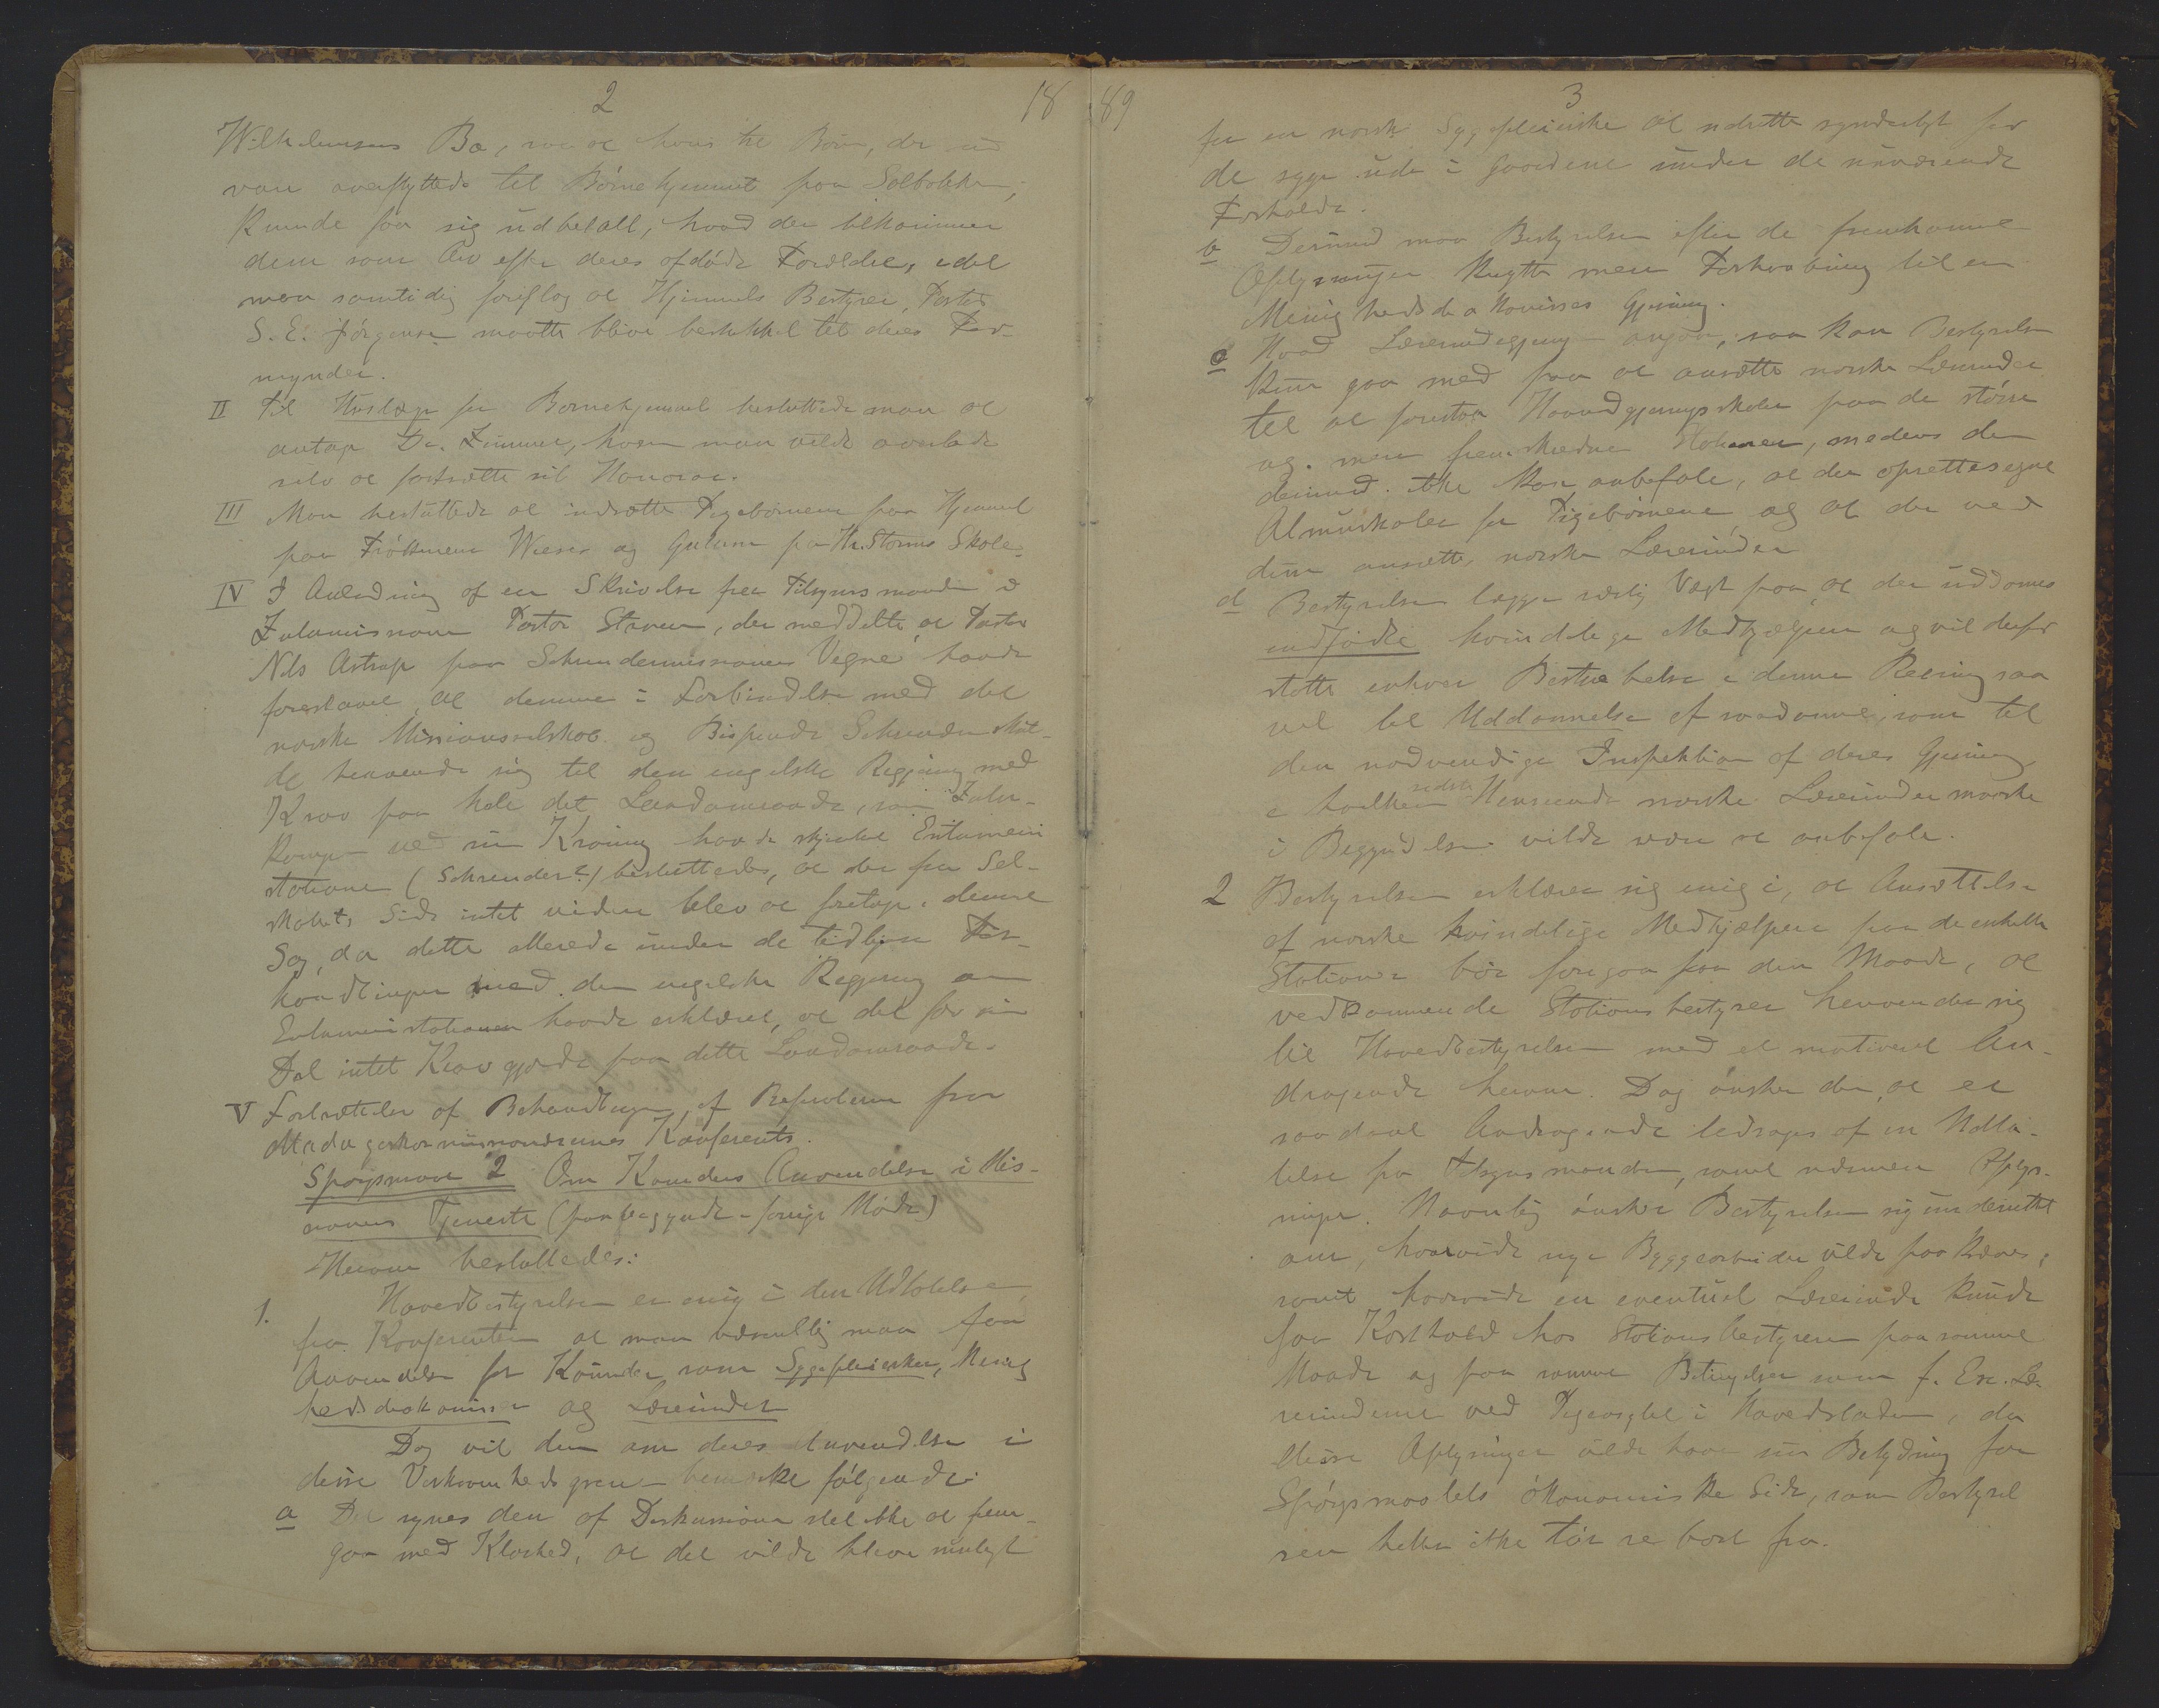 2
18
Wilhelmsens Bo, saa at hans tre Børn, der nu
var overflyttede til Børnehjemmet paa Solbakken,
Kunde faa sig udbetalt, hvad der tilkommer
dem som Arv efter deres afdøde Forældre, idet
man samtidig foreslog at Hjemmets Bestyrer, Pastor
S. E. Jørgensen maatte blive beskikket til deres For-
mynder.
II Til Huslæge for Børnehjemmet besluttede man at
antage Dr. Zimmer, hvem man vilde overlade
selv at fastsætte sit Honorar.
III Man besluttede at indsætte Pigebørnene paa Hjemmet
paa Frøknerne Wieses og Gutterne paa Th. Storms Skole.
IV I Anledning af en Skrivelse fra Tilsynsmanden i
Zulumissionen Pastor Stavem, der meddelte at Pastor
Nils Astrup paa Schreudermissionens Vegne havde
forestaaet at denne i Forbindelse med det
norske Missionsselskab og Biskop Schreuder skul-
de henvende sig til den engelske Regjering med
Krav paa hele det Landomraade, som Zulu-
kongen ved sin Kroning havde skjænket Entumeni
stationen (Schreuder?) besluttedes, at der fra Sel-
skabets Side intet videre blev at foretage i denne
Sag, da dette allerede under de tidligere For-
handlinger med den engelske Regjering om
Entumenistationen havde erklæret, at det for sin
Del intet Krav gjorde paa dette Landomraade.
V Fortsættelse af Behandlingen af Referaterne fra
Madagaskarmissionærernes Konferents.
Spørgsmaal 2 Om Kvinders Anvendelse i Mis-
sionens Tjeneste (paabegyndt i forrige Møde)
Herom besluttedes:
1. Hovedbestyrelsen er enig i den Udtalelse
fra Konferentsen at man væsentlig maa faa
Anvendelse for Kvinder som Sygepleiersker, Menig
hedsdiakonisser og Lærerinder
Dog vil den om deres Anvendelse i
disse Virksomhedsgrene bemærke følgende:
a Det synes den af Diskussionen slet ikke at frem-
gaa med Klarhed, at det vilde blive muligt
89
3
for en norsk Sygepleierske at udrette synderligt for
de syge ude i Gaardene under de nuværende
Forholde.
b Derimod maa Bestyrelsen efter de fremkomne
Oplysninger Knytte mere Forhaabning til en
Menighedsdiakonisses Gjerning.
c Hvad Lærerindegjerning angaar, saa kan Bestyrelsen
kun gaa med paa at ansætte norske Lærerinder
til at forestaa Haandgjerningsskoler paa de større
og mere fremskredne Stationer, medens den
derimod ikke kan anbefale, at der oprettes egne
Almuskoler for Pigebørnene og at der ved
dem ansættes norske Lærerinder
d Bestyrelsen lægger særlig Vægt paa, at der uddannes
indfødte kvindelige Medhjælpere og vil derfor
støtte enhver Bestræbelse i denne Retning saa
vel til Uddannelse af saadanne, som til
den nødvendige Inspektion af deres Gjerning
i hvilken sidste Henseende norske Lærerinder maaske
i Begyndelsen vilde være at anbefale.
2 Bestyrelsen erklærer sig enig i, at Ansættelse
af norske kvindelige Medhjælpere paa de enkelte
Stationer bør foregaa paa den Maade, at
vedkommende Stationsbestyrer henvender sig
til Hovedbestyrelsen med et motiveret An-
dragende herom. Dog ønsker den, at et
saadant Andragende ledsages af en Udta-
lelse fra Tilsynsmanden, samt nærmere Oplys-
ninger. Navnlig ønsker Bestyrelsen sig underrettet
om, hvorvidt nye Byggearbeider vilde paakræves,
samt hvorvidt en eventuel Lærerinde kunde
faa Kosthold hos Stationsbestyreren paa samme
Maade og paa samme Betingelser som f. Ex. Læ-
rerinderne ved Pigeasylet i Hovedstaden, da
disse Oplysninger vilde have sin Betydning for
Spørgsmaalets økonomiske Side, som Bestyrel
sen heller ikke tør se bort fra.